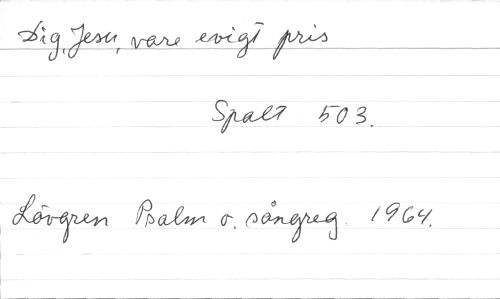 Dig, Jesu, vare evigt pris
Spalt 503.
Lövgren Psalm o. sångreg. 1964.